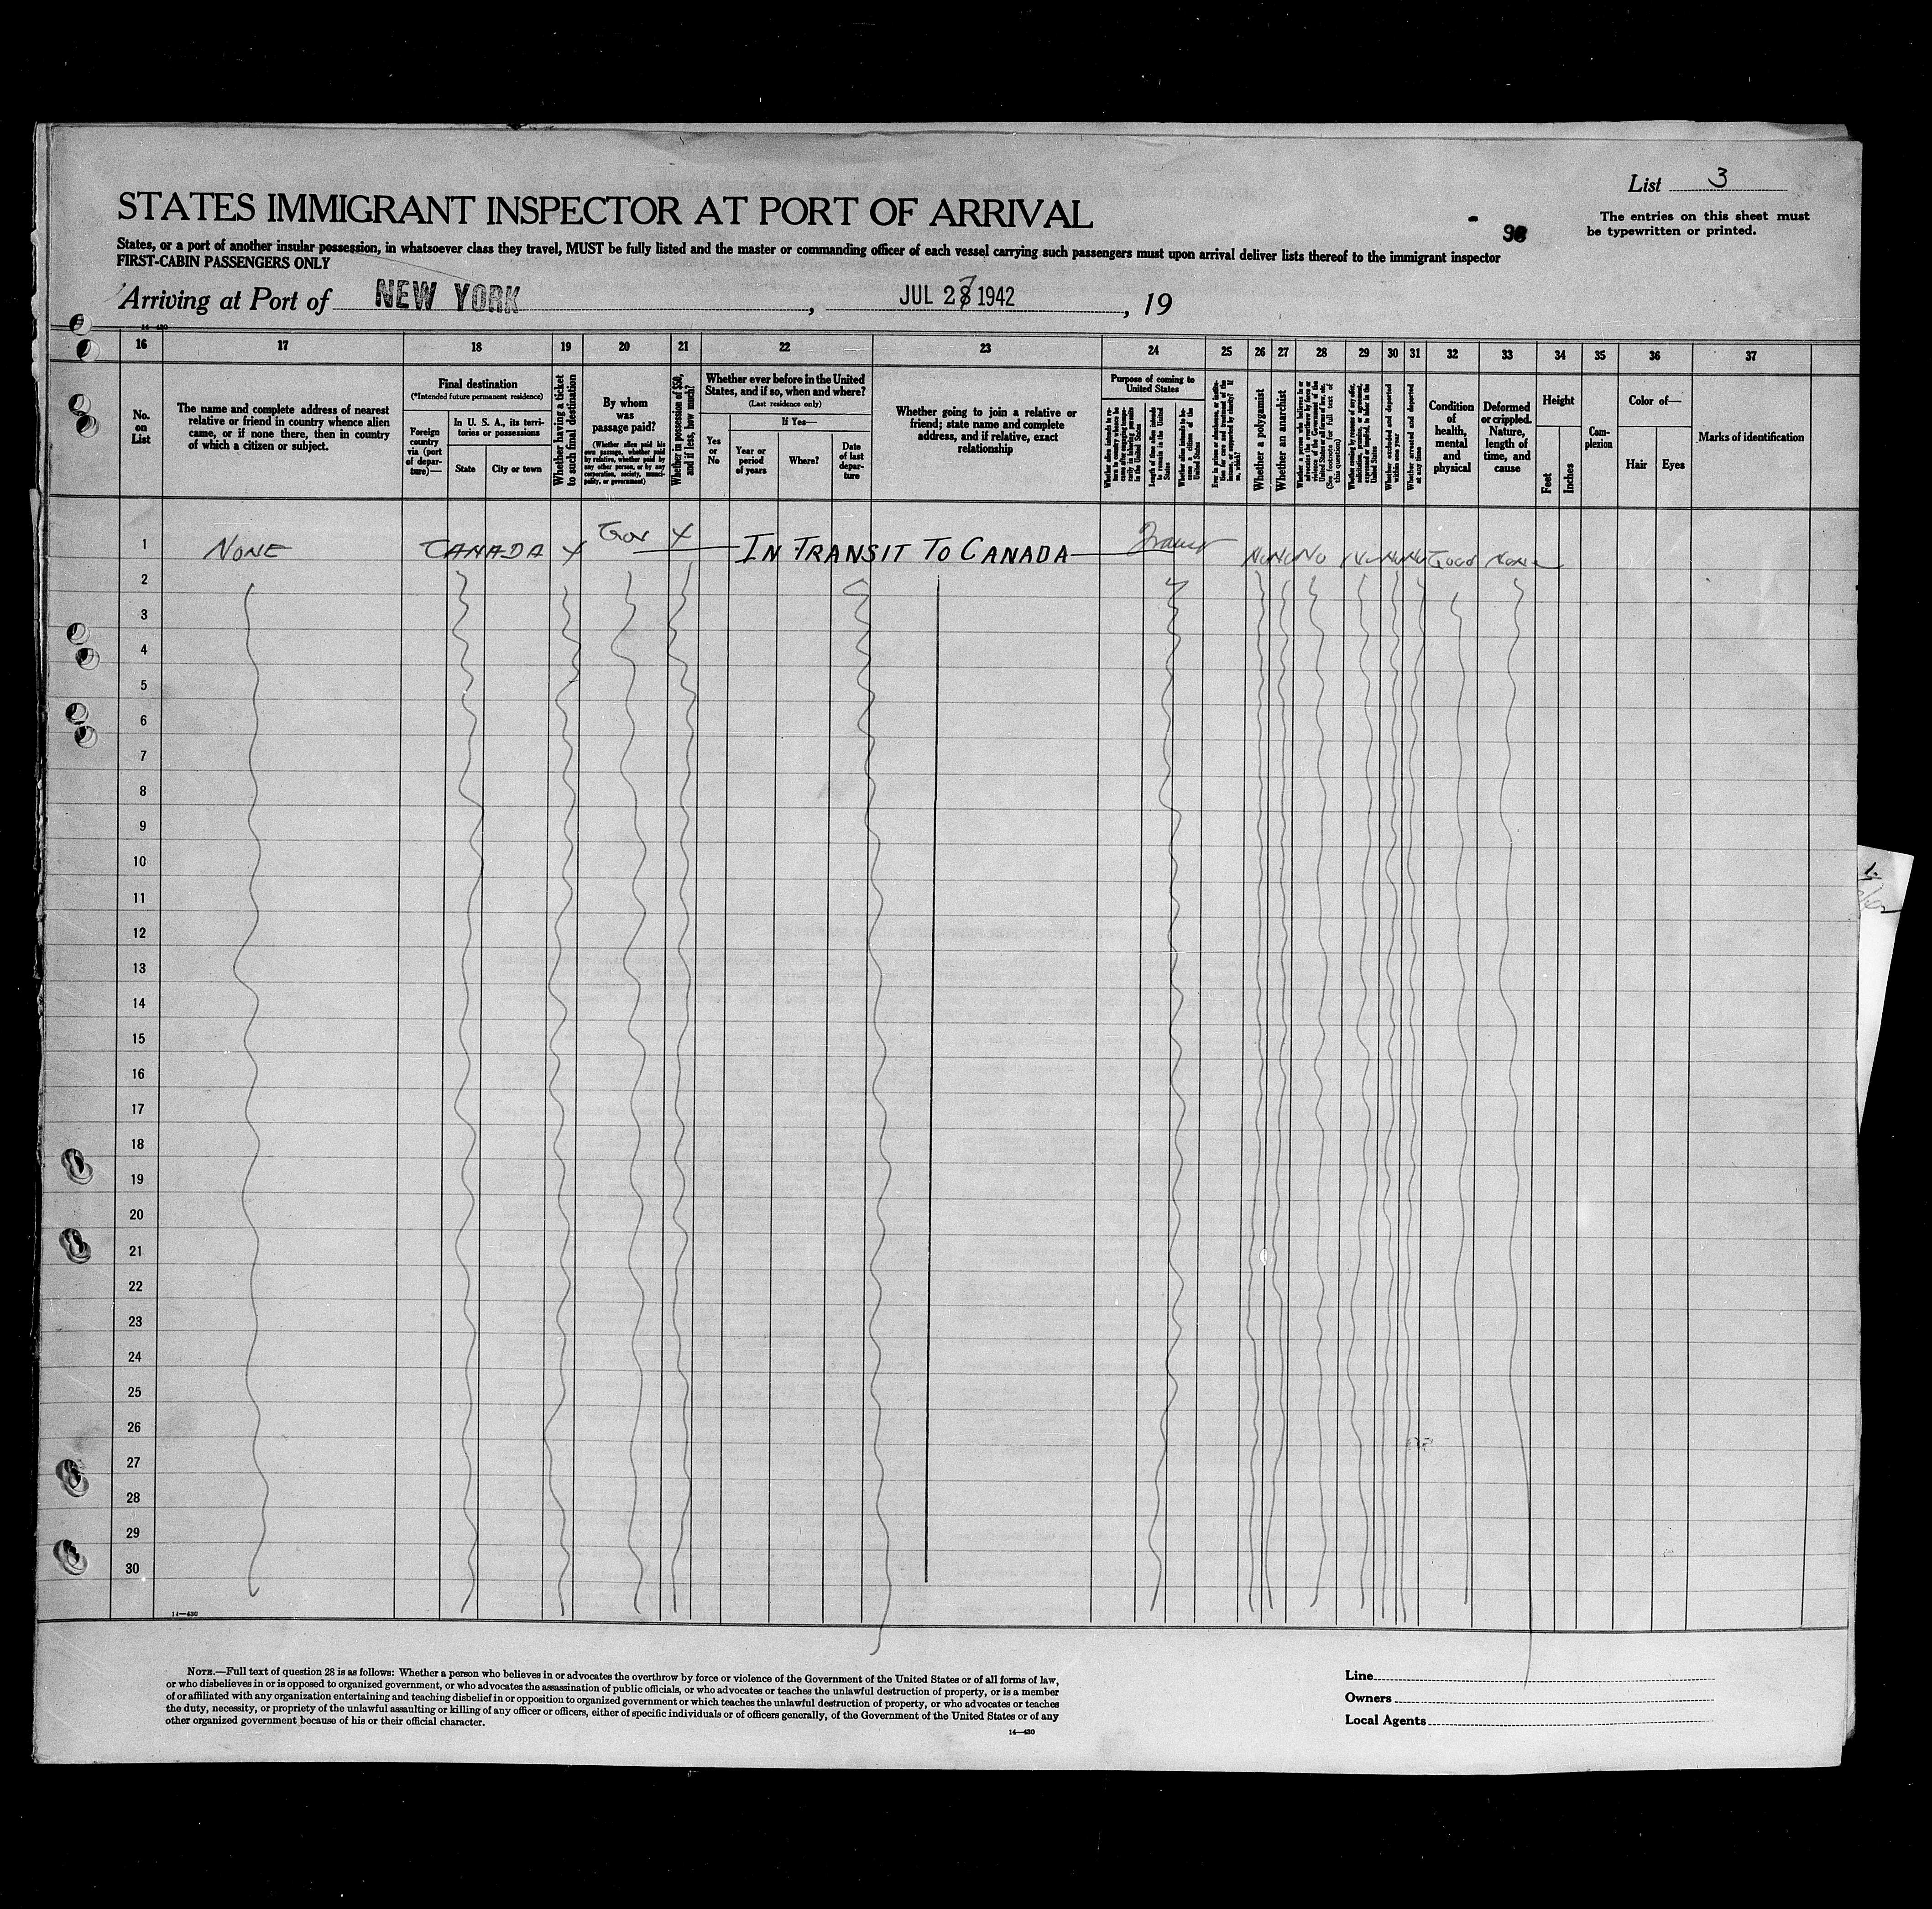 List 3
STATES IMMIGRANT INSPECTOR AT PORT OF ARRIVAL
The entries on this sheet must
be typewritten or printed.
States, or a port of another insular possession, in whatsoever class they travel, MUST be fully listed and the master or commanding officer of each vessel carrying such passengers must upon arrival deliver lists thereof to the immigrant inspector
FIRST-CABIN PASSENGERS ONLY
Arriving at Port of NEW YORK, JUL 27 1942, 19
14—430
16 17 18 19 20 21 22 23 24 25 26 27 28 29 30 31 32 33 34 35 36 37
No.
on
List
The name and complete address of nearest
relative or friend in country whence alien
came, or if none there, then in country
of which a citizen or subject.
Final destination
(*Intended future permanent residence)
Foreign
country
via (port
of depar-
ture)—
In U. S. A., its terri-
tories or possessions
State
City or town
Whether having a ticket
to such final destination
By whom
was
passage paid?
(Whether alien paid his
own passage, whether paid
by relative, whether paid by
any other person, or by any
corporation, society, munici-
pality, or government)
Whether in possession of $50,
and if less, how much?
Whether ever before in the United
States, and if so, when and where?
(Last residence only)
Yes
or
No
If Yes—
Year or
period
of years
Where?
Date
of last
depar-
ture
Whether going to join a relative or
friend; state name and complete
address, and if relative, exact
relationship
Purpose of coming to
United States
Whether alien intends to re-
turn to country whence he
came after engaging tempo-
rarily in laboring pursuits
in the United States
Length of time alien intends
to remain in the United
States
Whether alien intends to be-
come a citizen of the
United States
Whether a polygamist
Whether an anarchist
Whether a person who believes in or
advocates the overthrow by force or
violence of the Government of the
United States or all forms of law, etc.
(See footnote for full text of
this question)
Whether coming by reason of any offer,
solicitation, promise, or agreement,
expressed or implied, to labor in the
United States
Whether excluded and deported
within one year
Whether arrested and deported
at any time
Condition
of
health,
mental
and
physical
Deformed
or crippled.
Nature,
length of
time, and
cause
Height
Feet
Inches
Com-
plexion
Color of—
Hair
Eyes
Marks of identification
1 NONE CANADA X Gov X IN TRANSIT TO CANADA Transit No No No No No No Good None
2
3
4
5
6
7
8
9
10
11
12
13
14
15
16
17
18
19
20
21
22
23
24
25
26
27
28
29
30
14—430
NOTE.—Full text of question 28 is as follows: Whether a person who believes in or advocates the overthrow by force or violence of the Government of the United States or of all forms of law,
or who disbelieves in or is opposed to organized government, or who advocates the assassination of public officials, or who advocates or teaches the unlawful destruction of property, or is a member
of or affiliated with any organization entertaining and teaching disbelief in or opposition to organized government or which teaches the unlawful destruction of property, or who advocates or teaches
the duty, necessity, or propriety of the unlawful assaulting or killing of any officer or officers, either of specific individuals or of officers generally, of the Government of the United States or of any
other organized government because of his or their official character.
14—430
Line
Owners
Local Agents